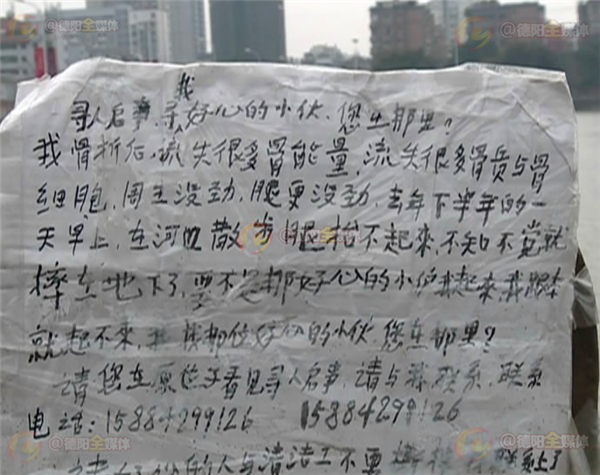 @德阳全媒体
@德阳全媒体
我
寻人启事,寻好心的小伙,您在那里?
我骨折后,流失很多骨能量,流失很多骨质与骨
细胞,周生没劲,腿更没劲,去年下半年的一
天早上,在河边散步腿抬不起来,不知不觉就
摔在地下了,要不是那好心的小伙我起来,我跟本
就起不来,我找那位好心的小伙,您在那里?
请您在原位子看见寻人启事,请与我联系,联系
电话:15884299126 15884299126
的人与清洁工不要
@德阳全媒体
@德阳全媒体